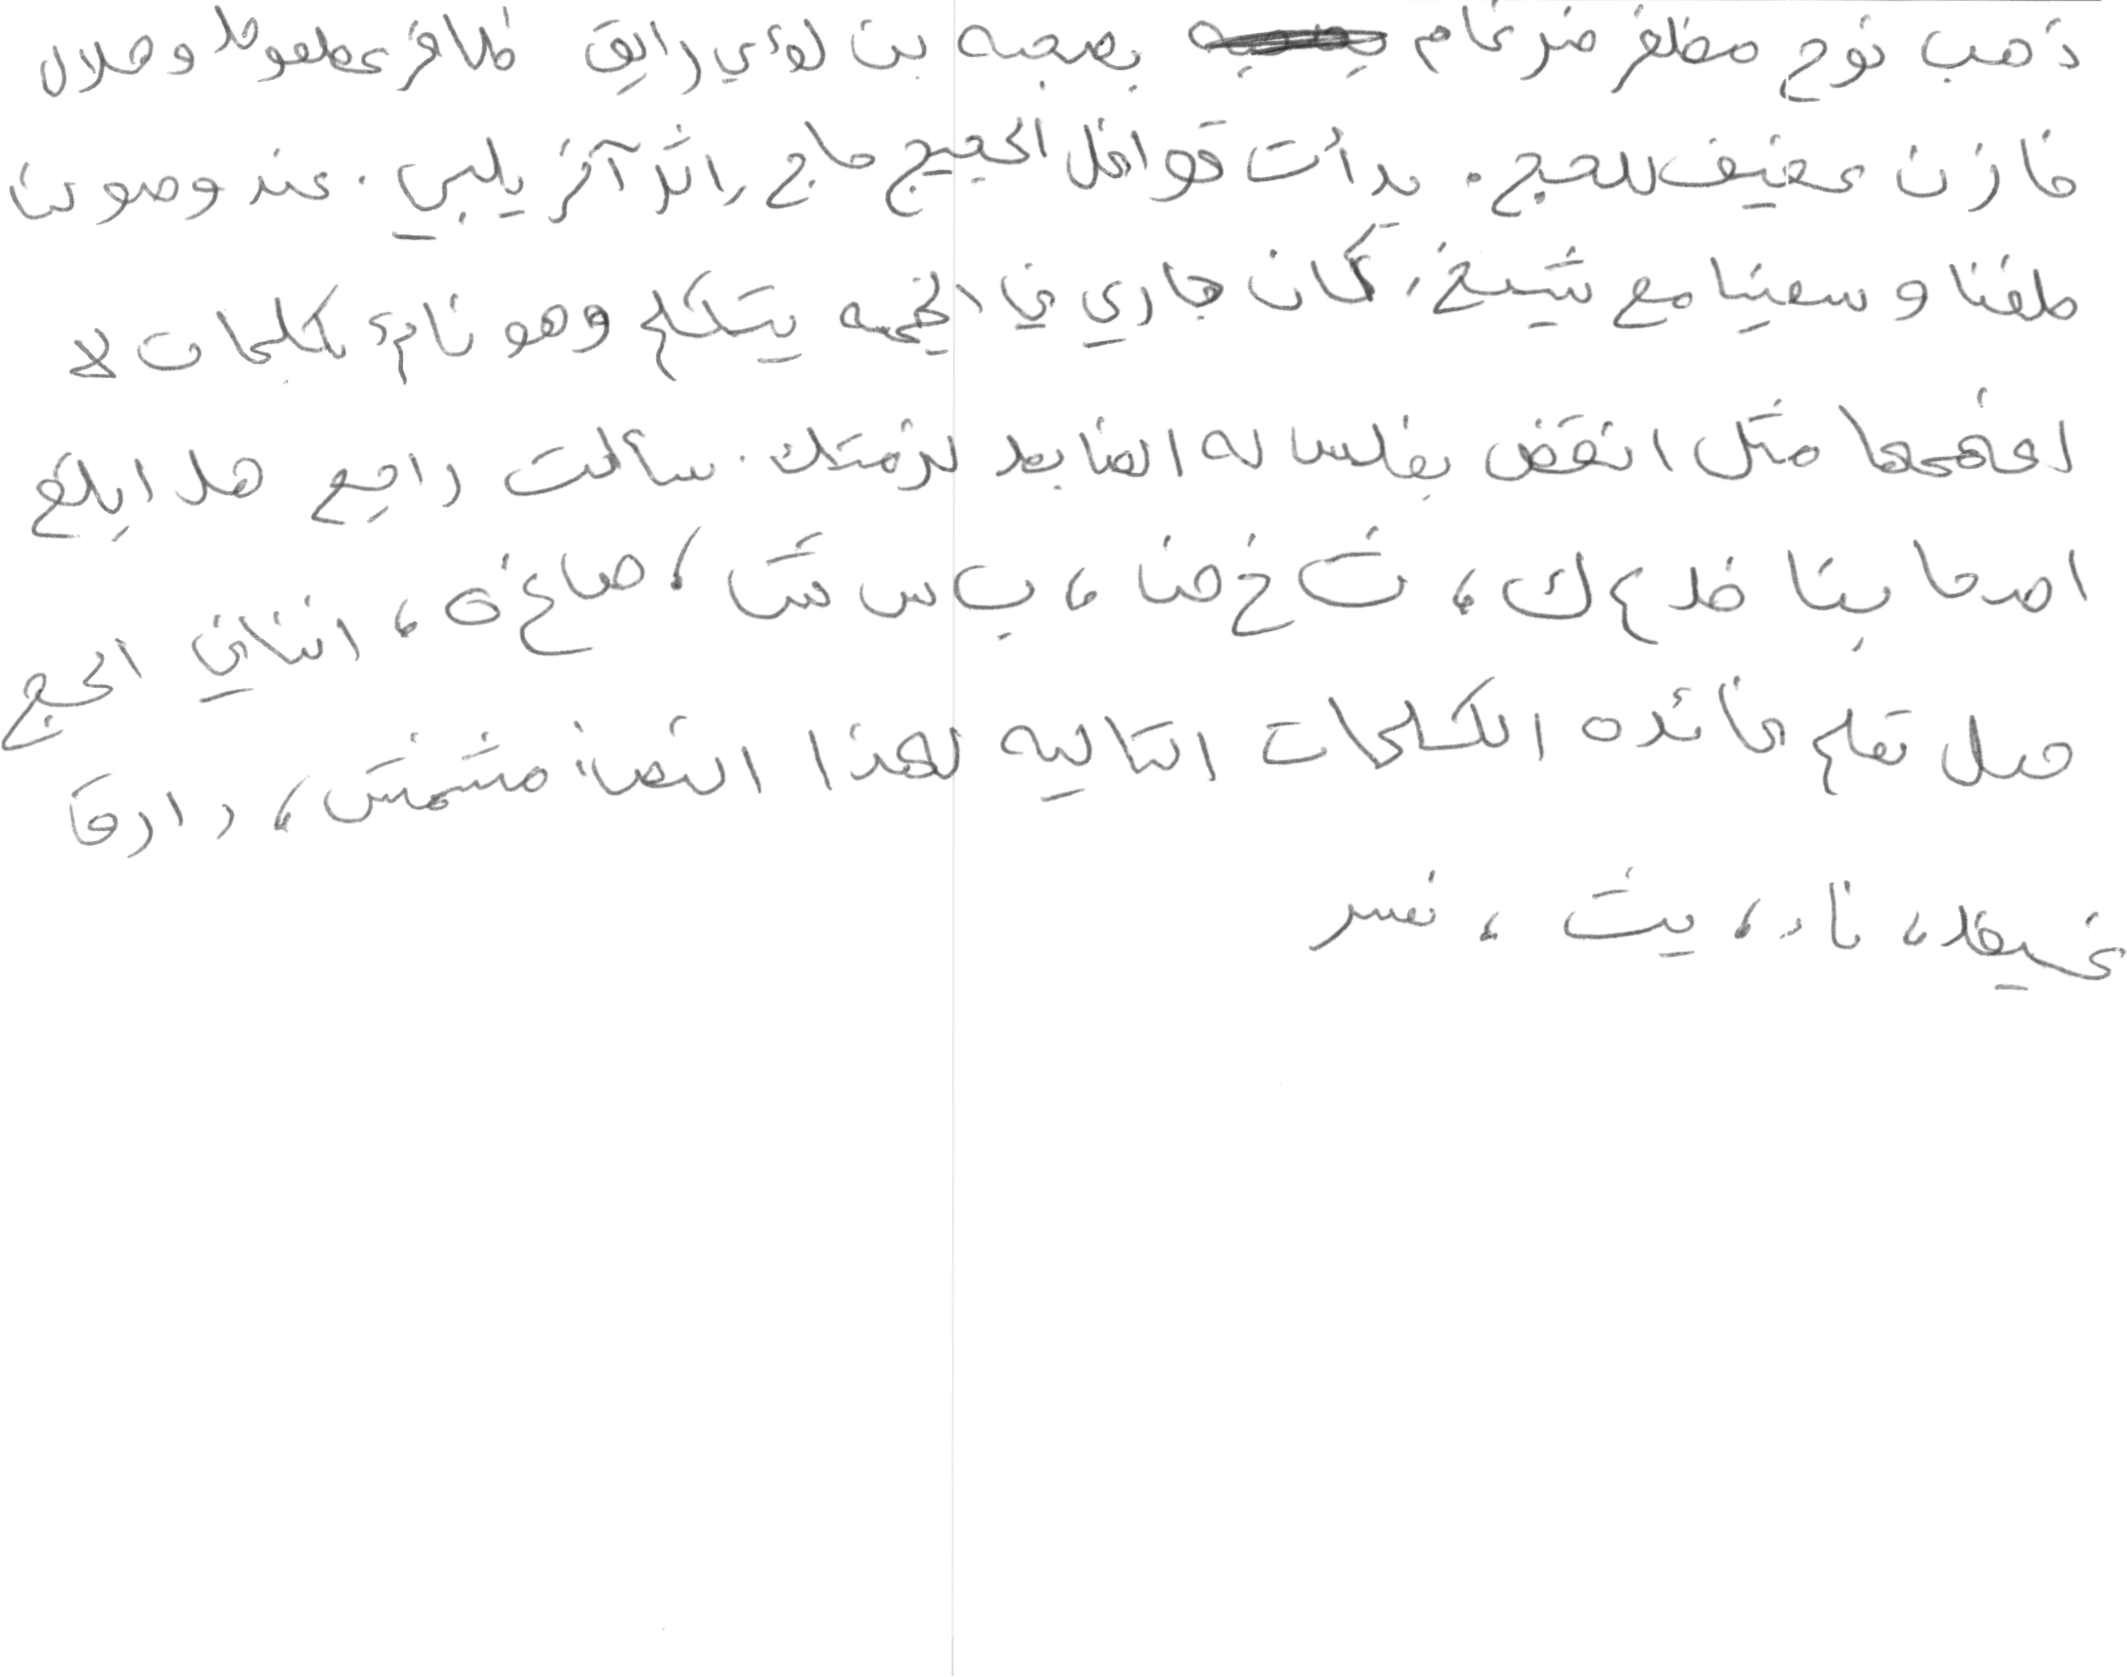 ذهب نوح مظفر ضرغام بصحبه بن لؤي رايق ظافر عطعوط وهلال
خازن عفيف للحج. بدأت قوافل الحجيج حاج راثر آخر يلبي. عند وصولنا
طفنا وسعينا مع شيخ، كان جاري في الخيمه يتكلم وهو نائم بكلمات لا
افهمها مثل انقض بغلساله الضابط لزمتك. سألت راجع هل ابلغ
اصحابنا خدع ك، ث خ ضا، ب س شا، صاغ ه، اثناني الحج
هل تعلم فائده الكلمات التاليه لهذا النص: مشمش، دارقا
غيظ، ناء، يث، نفسر